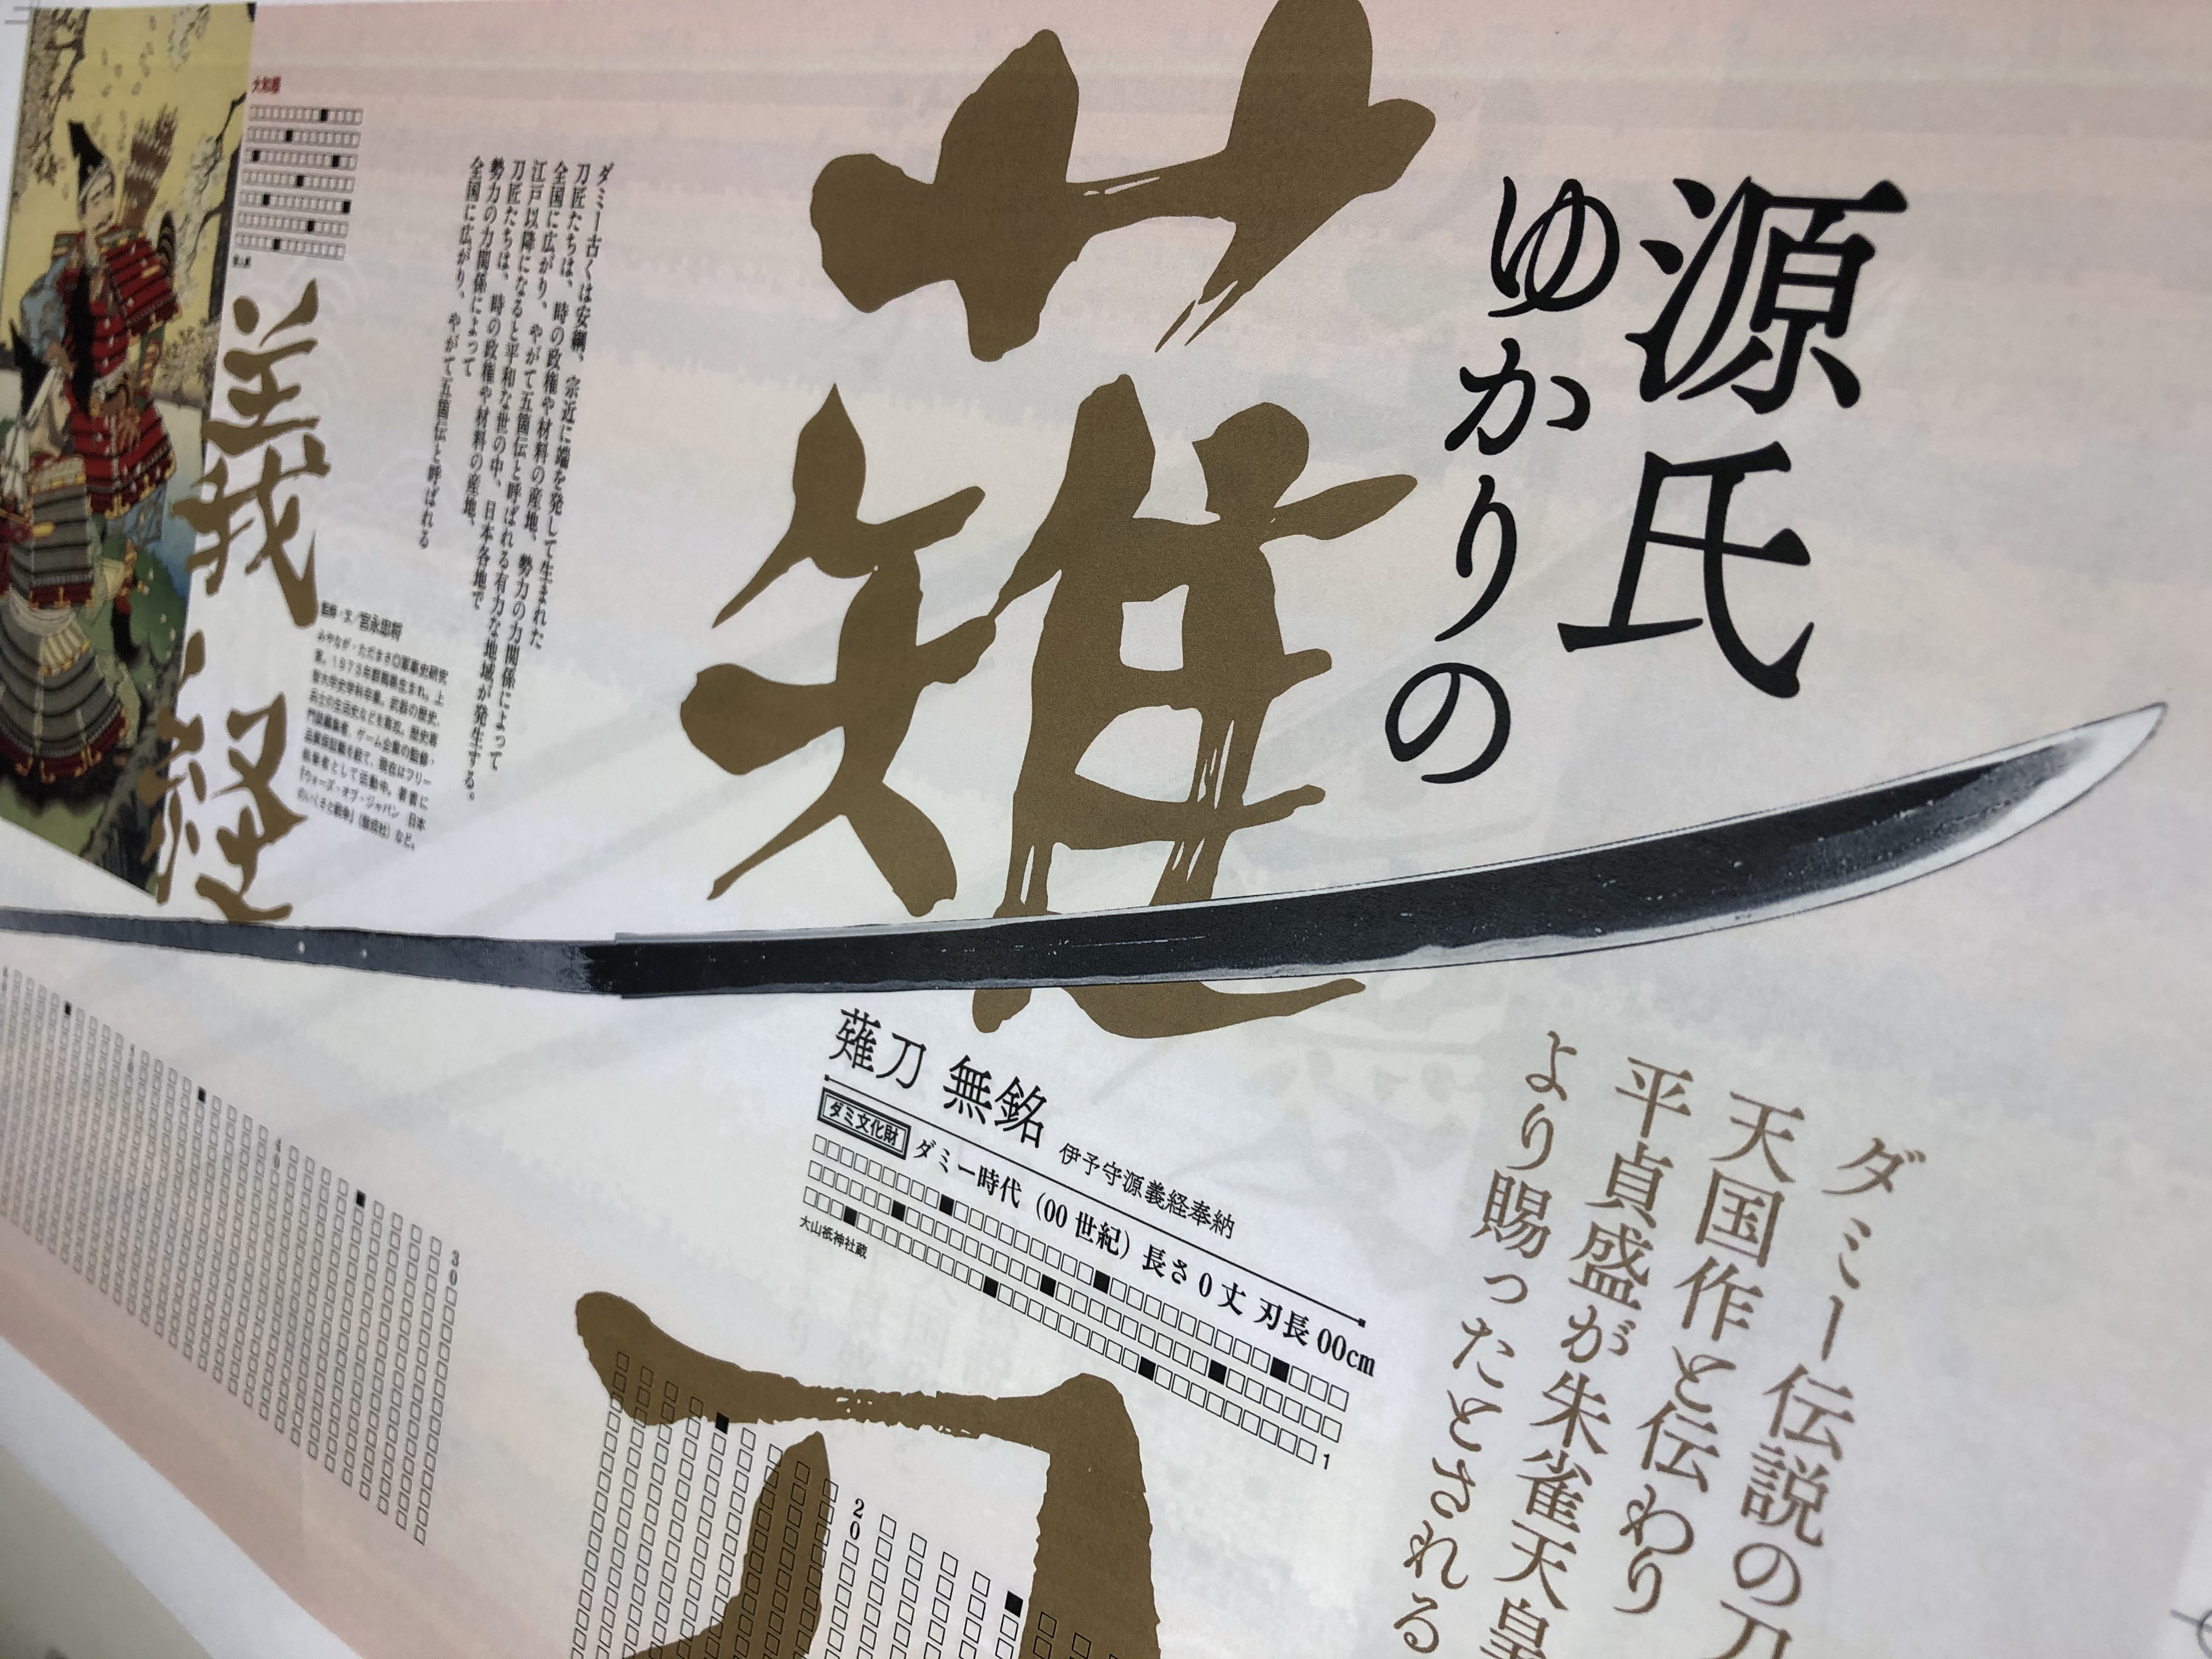 源氏
ゆかりの
薙
刀
薙刀 無銘 伊予守源義経奉納
ダミ文化財 ダミー時代(00世紀)長さ0丈 刃長00cm
□□□□□□□□□■□□□□□□□□□□■□□□□□□□□□□□■□□□□
大山祇神社蔵
1
ダミー伝説の刀
天国作と伝わり
平貞盛が朱雀天皇
より賜ったとされる
ダミー古くは安綱、宗近に端を発して生まれた
刀匠たちは、時の政権や材料の産地、勢力の力関係によって
全国に広がり、やがて五箇伝と呼ばれる有力な地域が発生する。
江戸以降になると平和な世の中、日本各地で
刀匠たちは、時の政権や材料の産地、
勢力の力関係によって
全国に広がり、やがて五箇伝と呼ばれる
大和
義経
監修・文/宮永忠将
みやなが・ただまさ◎軍事史研究
家。1973年群馬県生まれ。上
智大学史学科卒業。武器の歴史、
兵士の生活史などを専攻。歴史専
門誌編集者、ゲーム企業の監修・
品質保証職を経て、現在はフリー
執筆者として活動中。著書に
『ウォーズ・オブ・ジャパン 日本
のいくさと戦争』(偕成社)など。
20
30
40
50